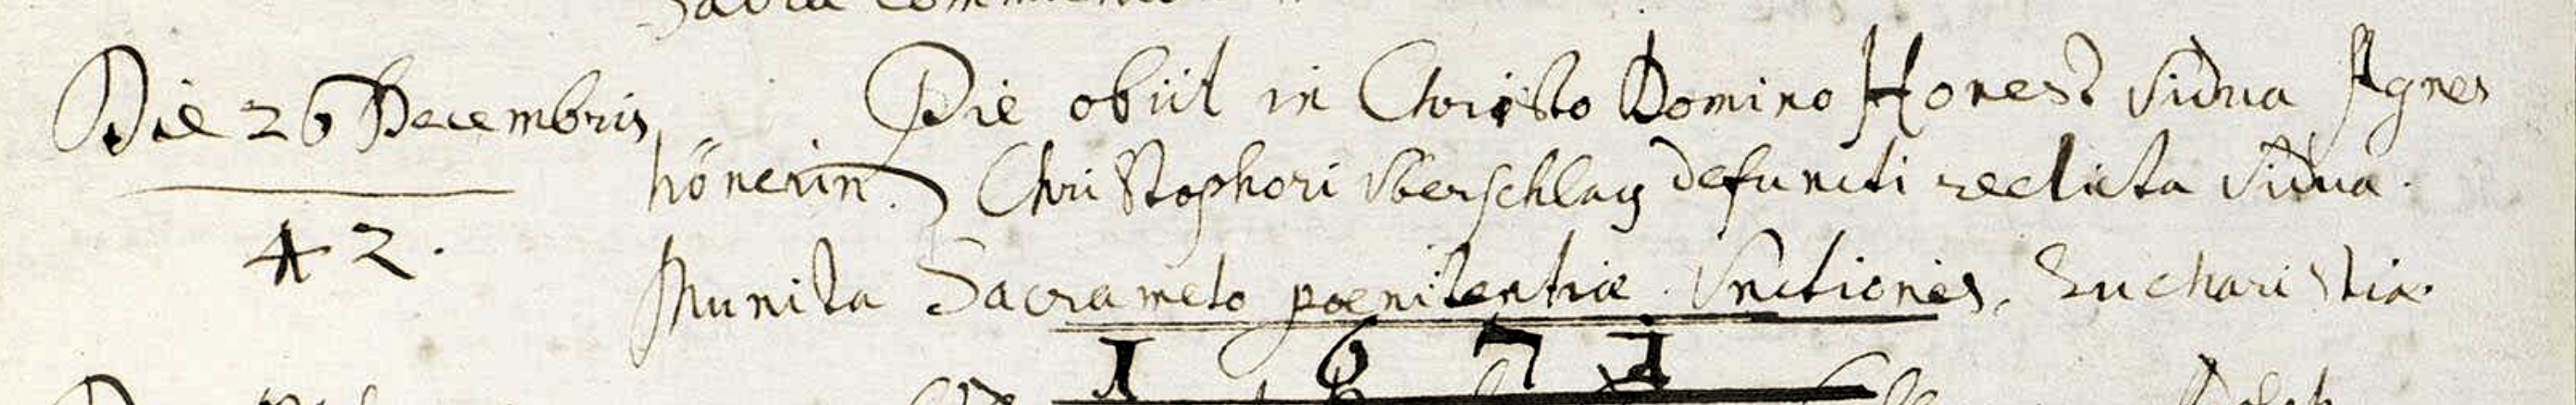 Die 26 Decembris
42.
Pie obiit in Christo Domino Honest vidua Agnes
hönerin. Christophori Vberschlag defuncti relicta vidua.
Munita Sacrameto poenitentiæ. Vnctionis, Eucharistiæ.
1671